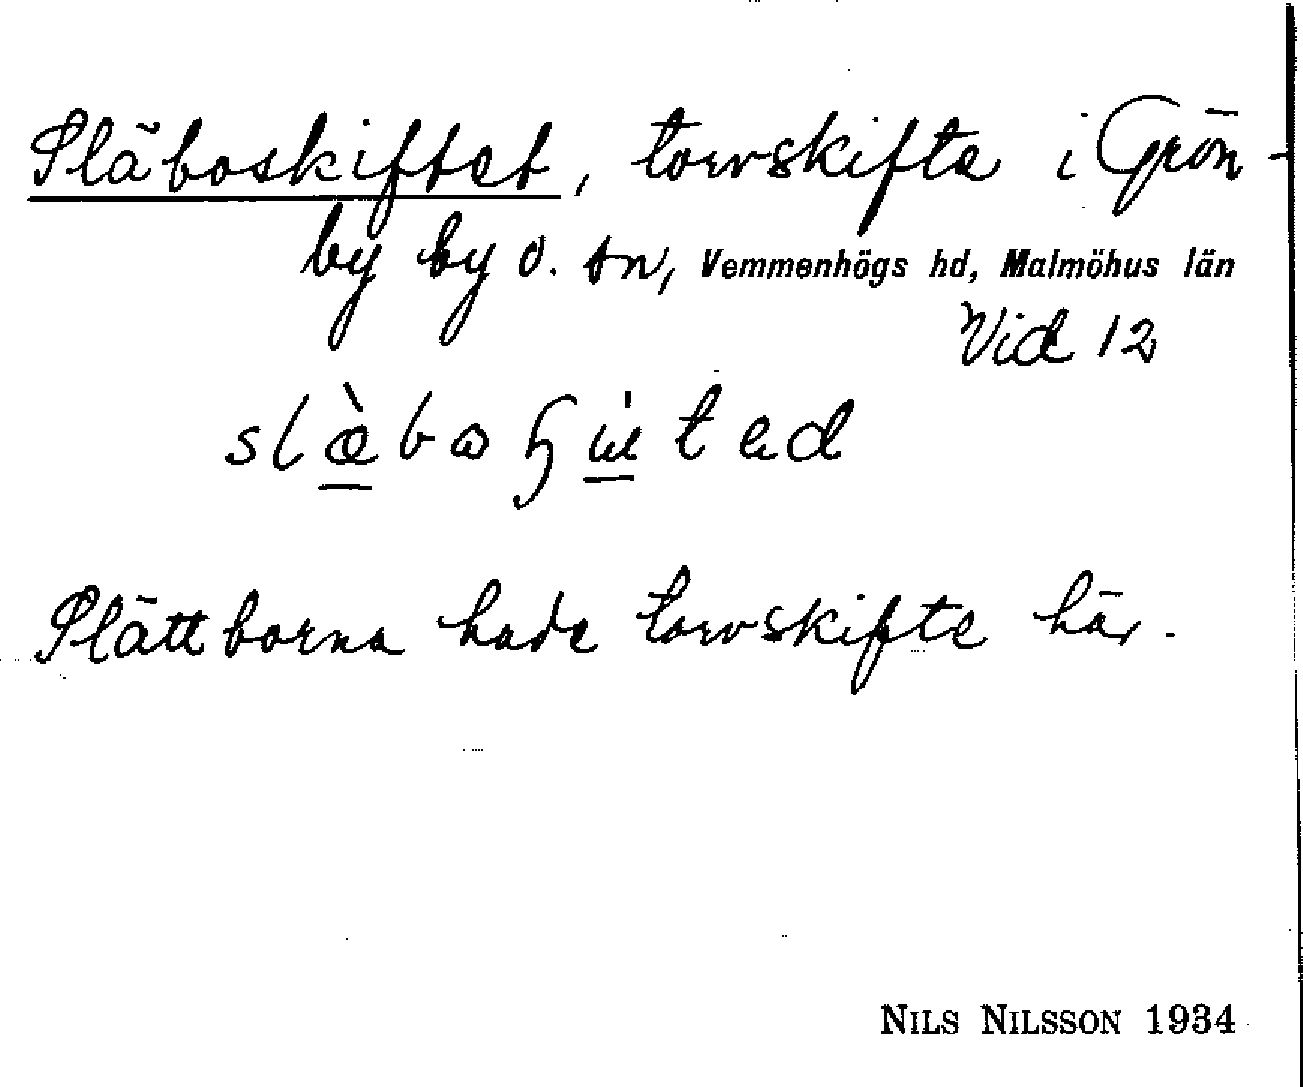 Släboskiftet, torvskifte i Grön-
by by o. sn, Vemmenhögs hd, Malmöhus län
Vid 12
Slättborna hade torvskifte här.
NILS NILSSON 1934